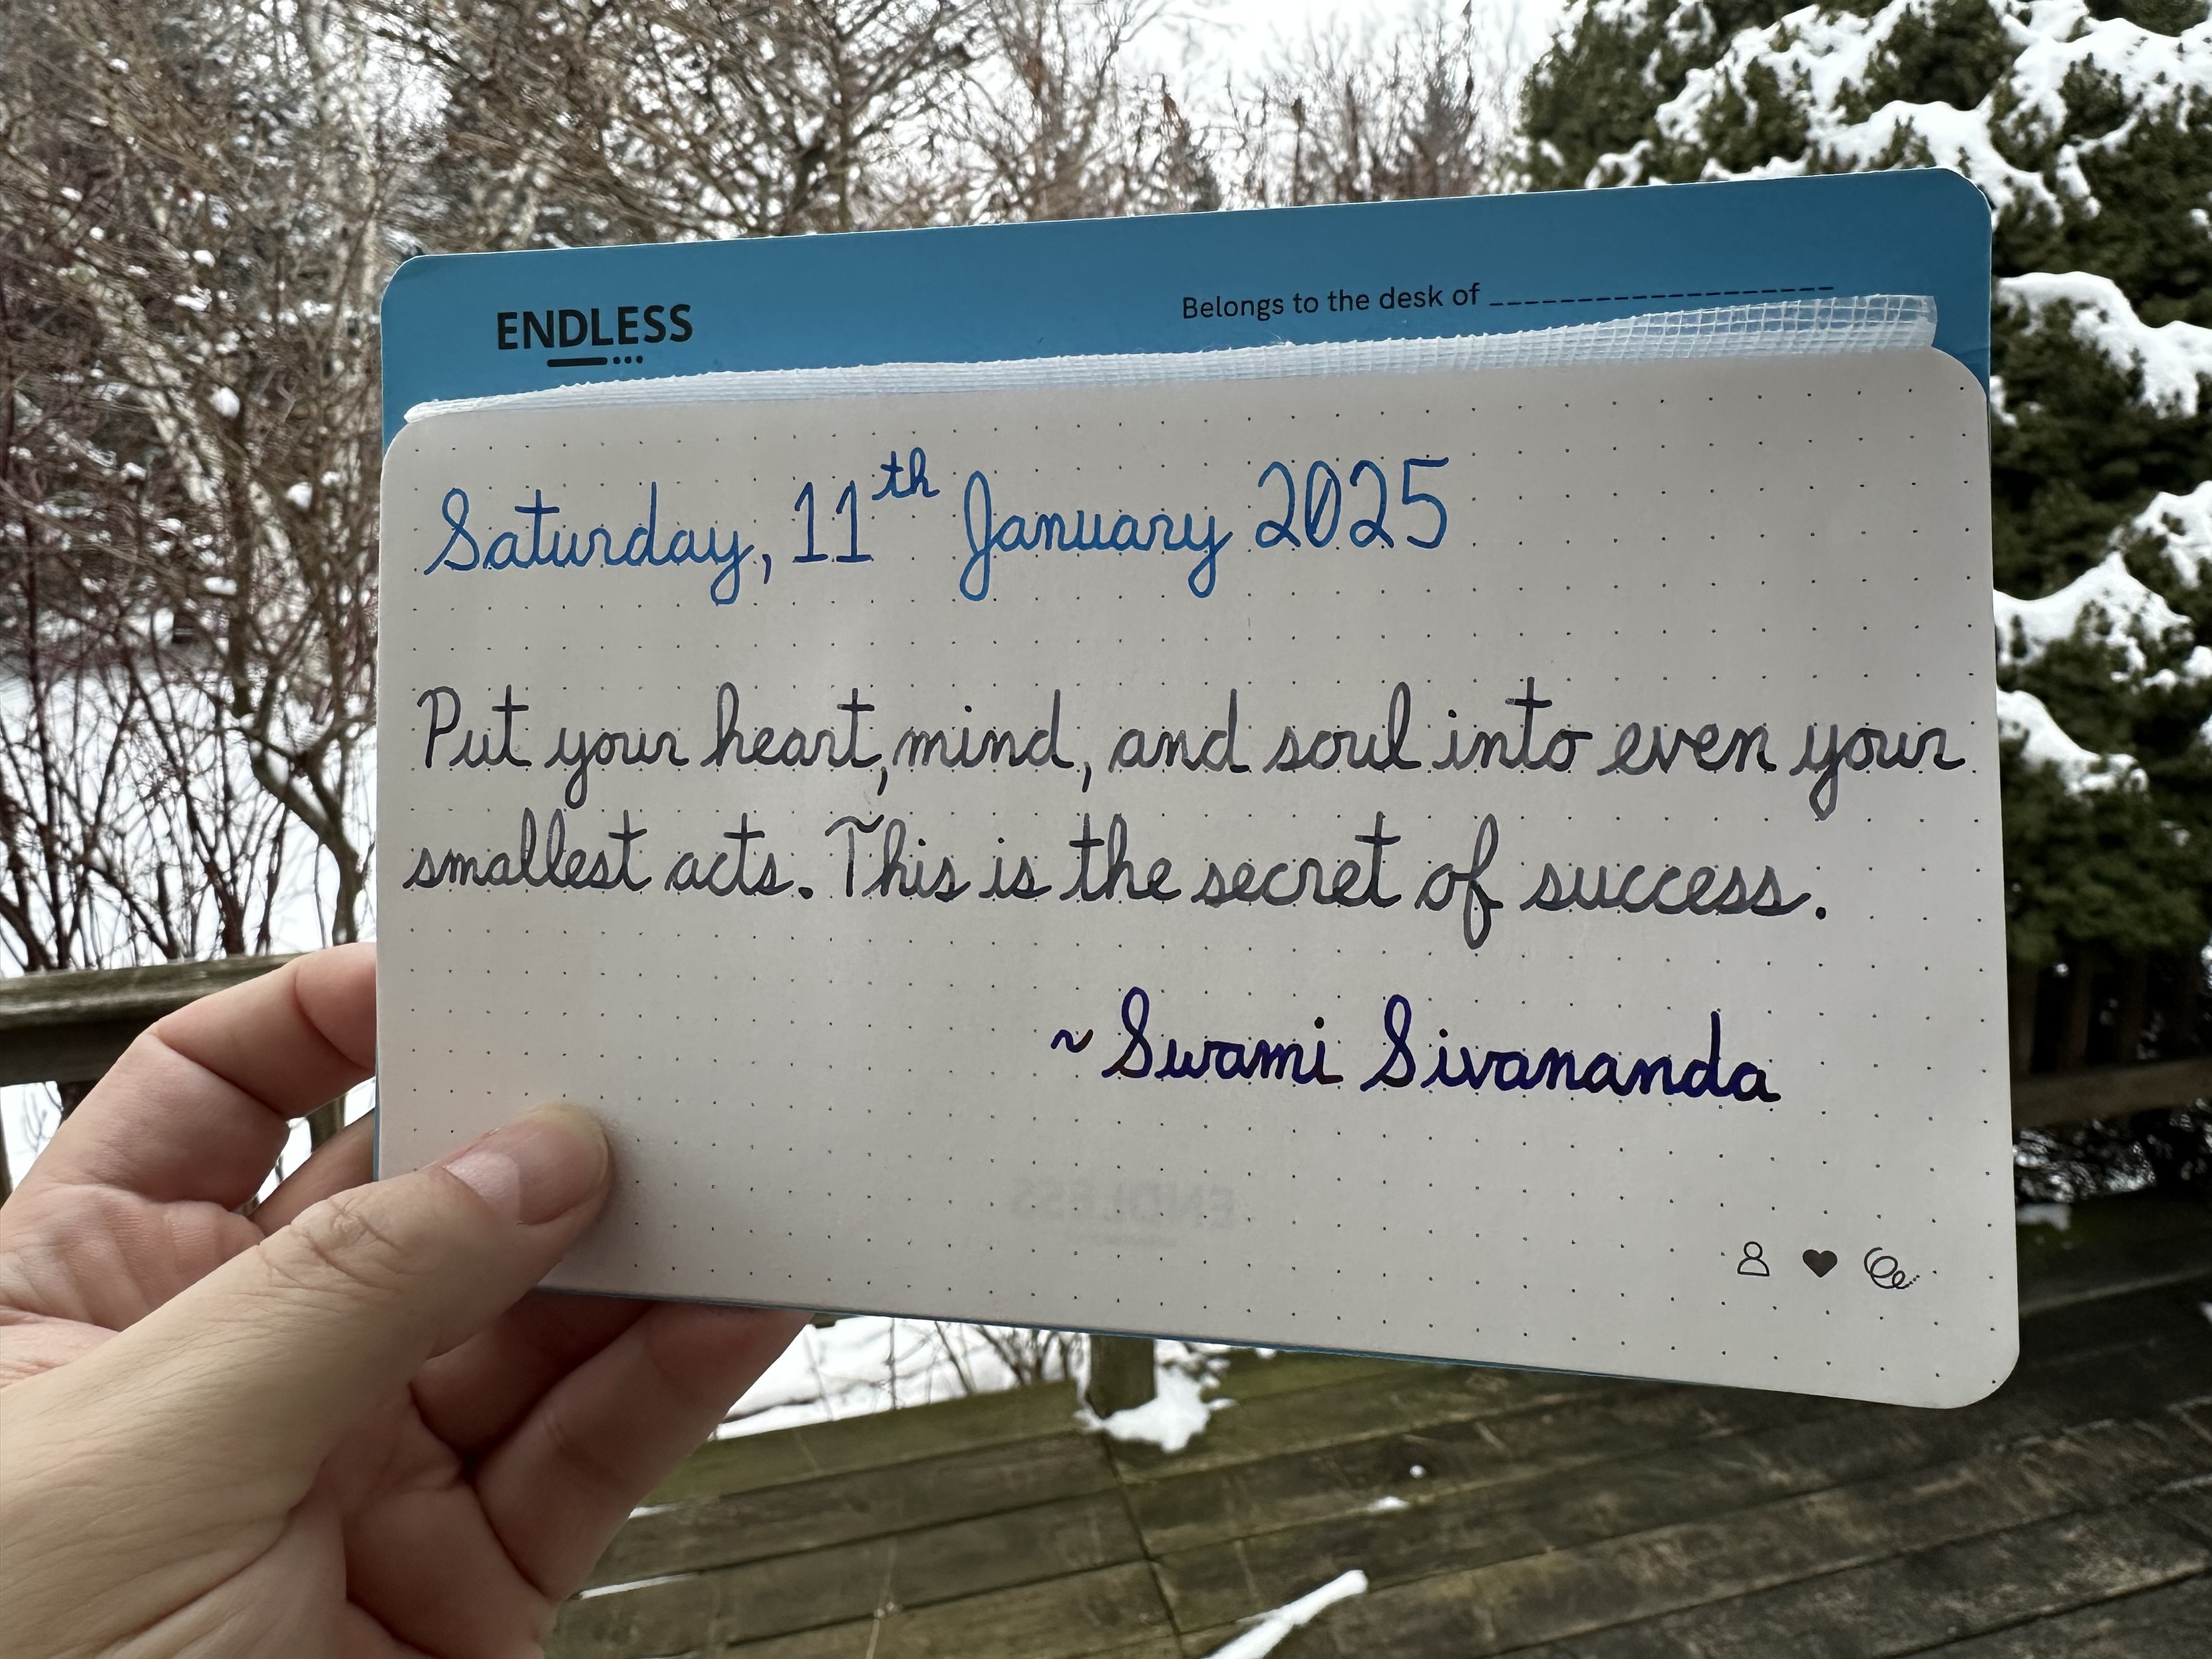 ENDLESS
Belongs to the desk of
Saturday, 11th January 2025
Put your heart, mind, and soul into even your
smallest acts. This is the secret of success.
~ Swami Sivananda
ENDLESS